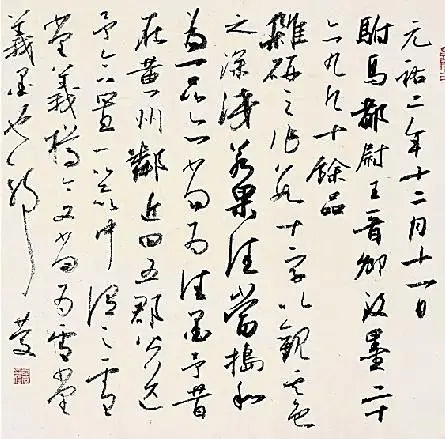 元祐二年十二月十一日
駙馬都尉王晉卿致墨二十
六丸凡十餘品
雜研之作數十字以觀其色
之深淺若果佳當搗和
為一品亦當為佳墨予昔
在黃州鄰近四五郡皆送
予合置一器中謂之雪
堂義樽今又當為雪堂
義墨也耶